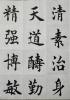 清素治身
天道醻勤
精强博敏